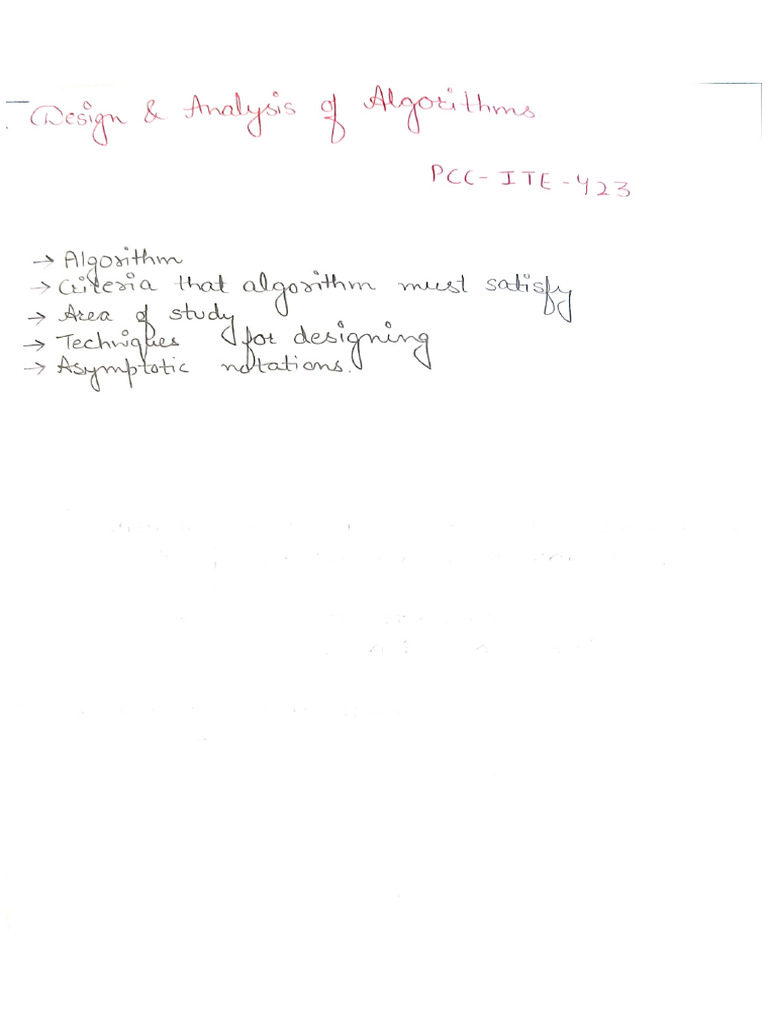 Design & Analysis of Algorithms
PCC-ITE-423
→ Algorithm
→ Criteria that algorithm must satisfy
→ Area of study
→ Techniques for designing
→ Asymptotic notations.